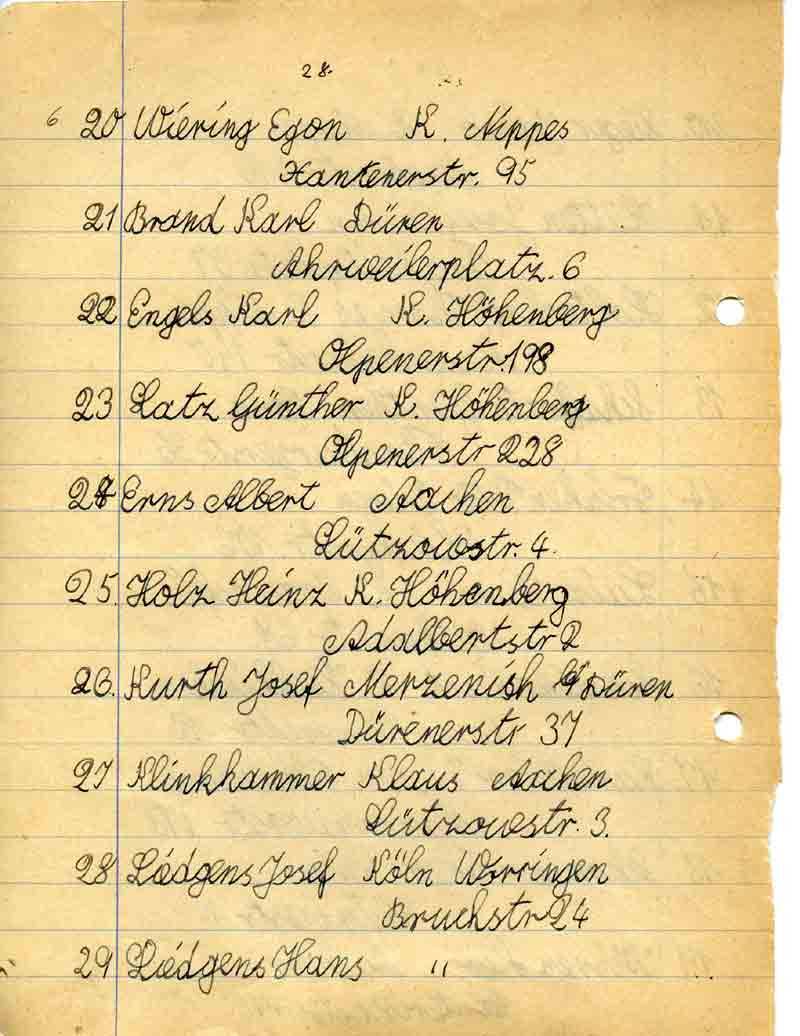 28.
6 20 Wiering Egon K. Nippes
Xantenerstr. 95
21 Brand Karl Düren
Ahrweilerplatz. 6
22 Engels Karl K. Höhenberg
Olpenerstr. 198
23 Latz Günther K. Höhenberg
Olpenerstr 228
24 Erns Albert Aachen
Lützowstr. 4.
25. Holz Heinz K. Höhenberg
Adalbertstr 2
26. Kurth Josef Merzenich Düren
Dürenerstr 37
27 Klinkhammer Klaus Aachen
Lützowstr. 3.
28 Josef Köln Worringen
Bruchstr 24
29 Hans "